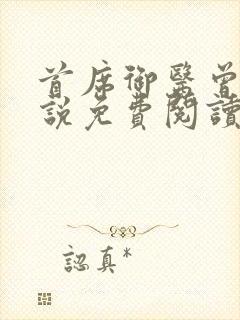 首席御醫曾
說免費閱讀
認真*